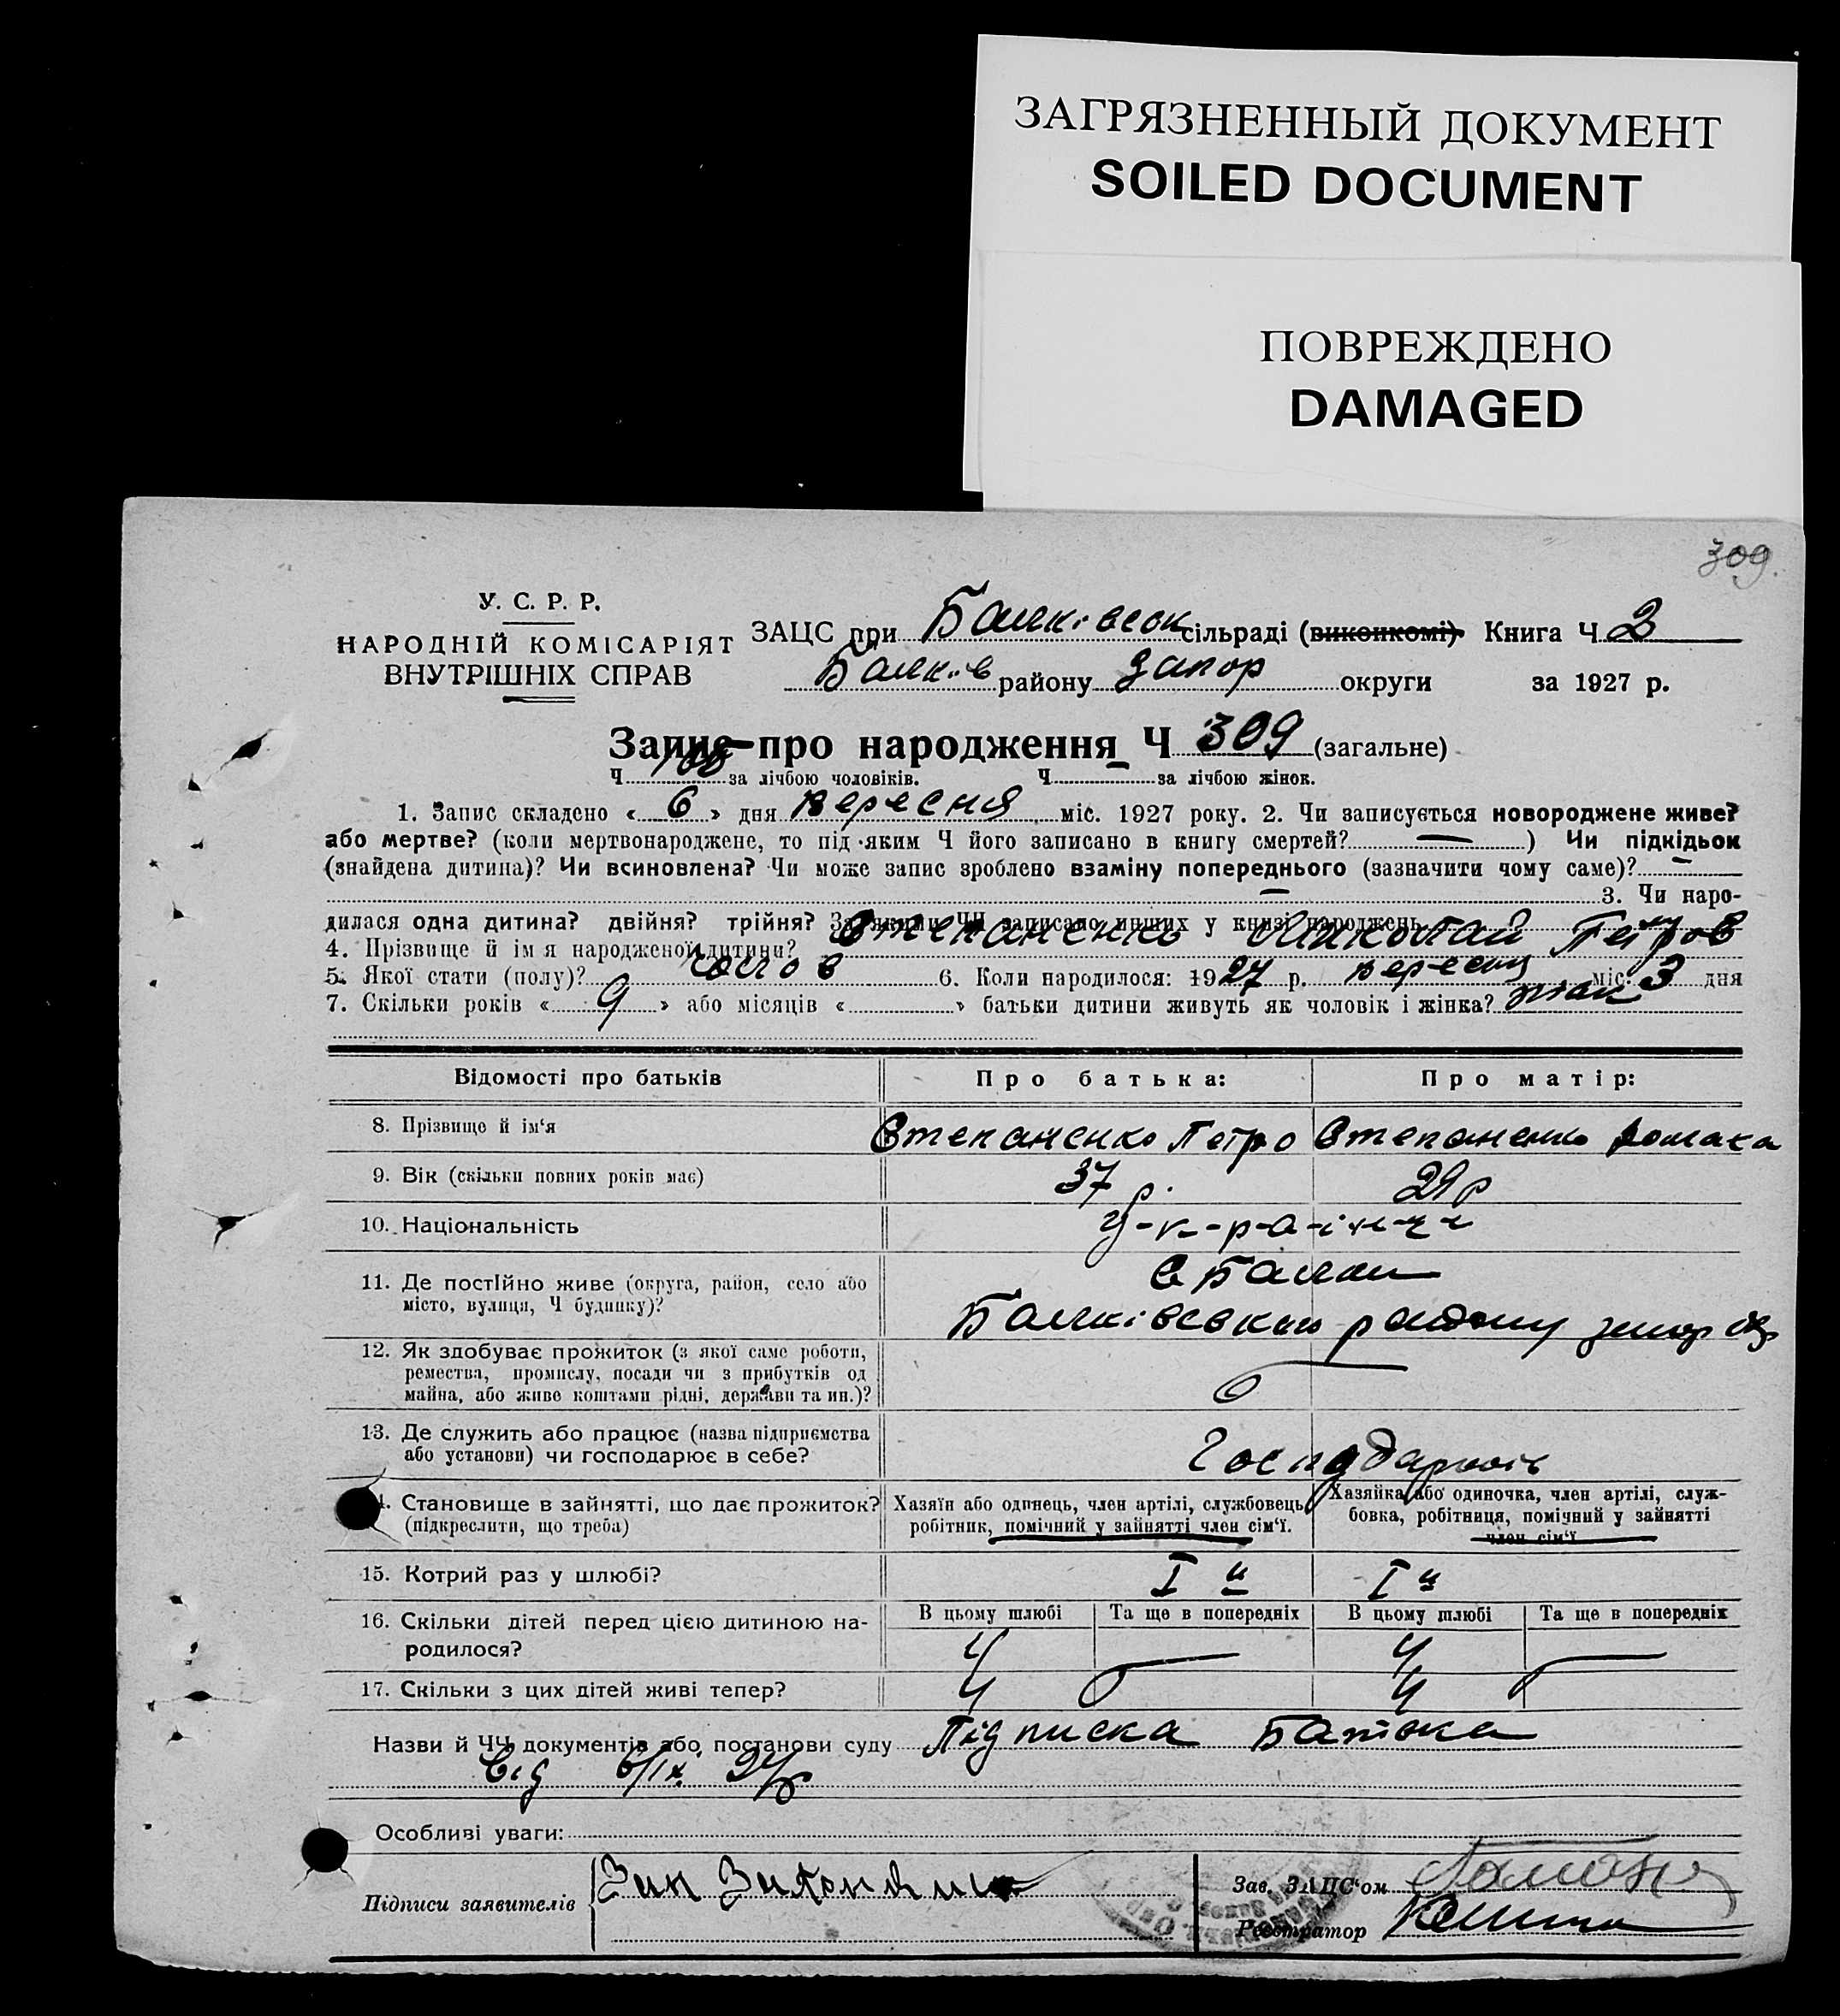 ЗАГРЯЗНЕННЫЙ ДОКУМЕНТ
SOILED DOCUMENT
ПОВРЕЖДЕНО
DAMAGED
309.
У. С. Р. Р.
НАРОДНІЙ КОМІСАРІЯТ
ВНУТРІШНІХ СПРАВ
ЗАЦС при Балківськ сільраді (виконкомі). Книга Ч 2
Балків району Запор округи за 1927 р.
Запис про народження Ч 309 (загальне)
Ч за лічбою чоловіків. Ч — за лічбою жінок.
1. Запис складено « 6 » дня вересня міс. 1927 року. 2. Чи записується новороджене живе?
або мертве? (коли мертвонароджене, то під яким Ч його записано в книгу смертей? — ) Чи підкідьок
(знайдена дитина)? Чи всиновлена? Чи може запис зроблено взаміну попереднього (зазначити чому саме)? —
— 3. Чи наро-
дилася одна дитина? двійня? трійня? За якими ЧЧ записано инших у книзі народжень
4. Прізвище й ім я народженої дитини? Степаненко Миколай Петров
5. Якої стати (полу)? чолов 6. Коли народилося: 1927 р. вересня міс. 3 дня
7. Скільки років « 9 » або місяців « » батьки дитини живуть як чоловік і жінка? так
Відомості про батьків Про батька: Про матір:
8. Прізвище й ім‘я Степаненко Петро Степаненко
9. Вік (скільки повних років має) 37 р. 29 р
10. Національність у-к-р-а-ї-н-ц-і
11. Де постІйно живе (округа, район, село або
місто, вулиця, Ч будинку)?
с Балки
Балківського району запор окр
12. Як здобуває прожиток (з якої саме роботи,
ремества, промислу, посади чи з прибутків од
майна, або живе коштами рідні, держави та ин.)?
13. Де служить або працює (назва підприємства
або установи) чи господарює в себе?
Господарють
4. Становище в зайнятті, що дає прожиток?
(підкреслити, що треба)
Хазяїн або одинець, член артілі, службовець,
робітник, помічний у зайнятті член сім‘ї.
Хазяйка або одиночка, член артілі, служ-
бовка, робітниця, помічний у зайнятті
член сім‘ї
15. Котрий раз у шлюбі? I й I й
16. Скільки дітей перед цією дитиною на-
родилося?
В цьому шлюбі Та ще в попередніх В цьому шлюбі Та ще в попередніх
4 — 4 —
17. Скільки з цих дітей живі тепер? 4 — 4 —
Назви й ЧЧ документів або постанови суду Підписка Батька
Від 6/IX 27р
Особливі уваги:
Підписи заявителів
Зав. ЗАЦС‘ом
Реєстратор